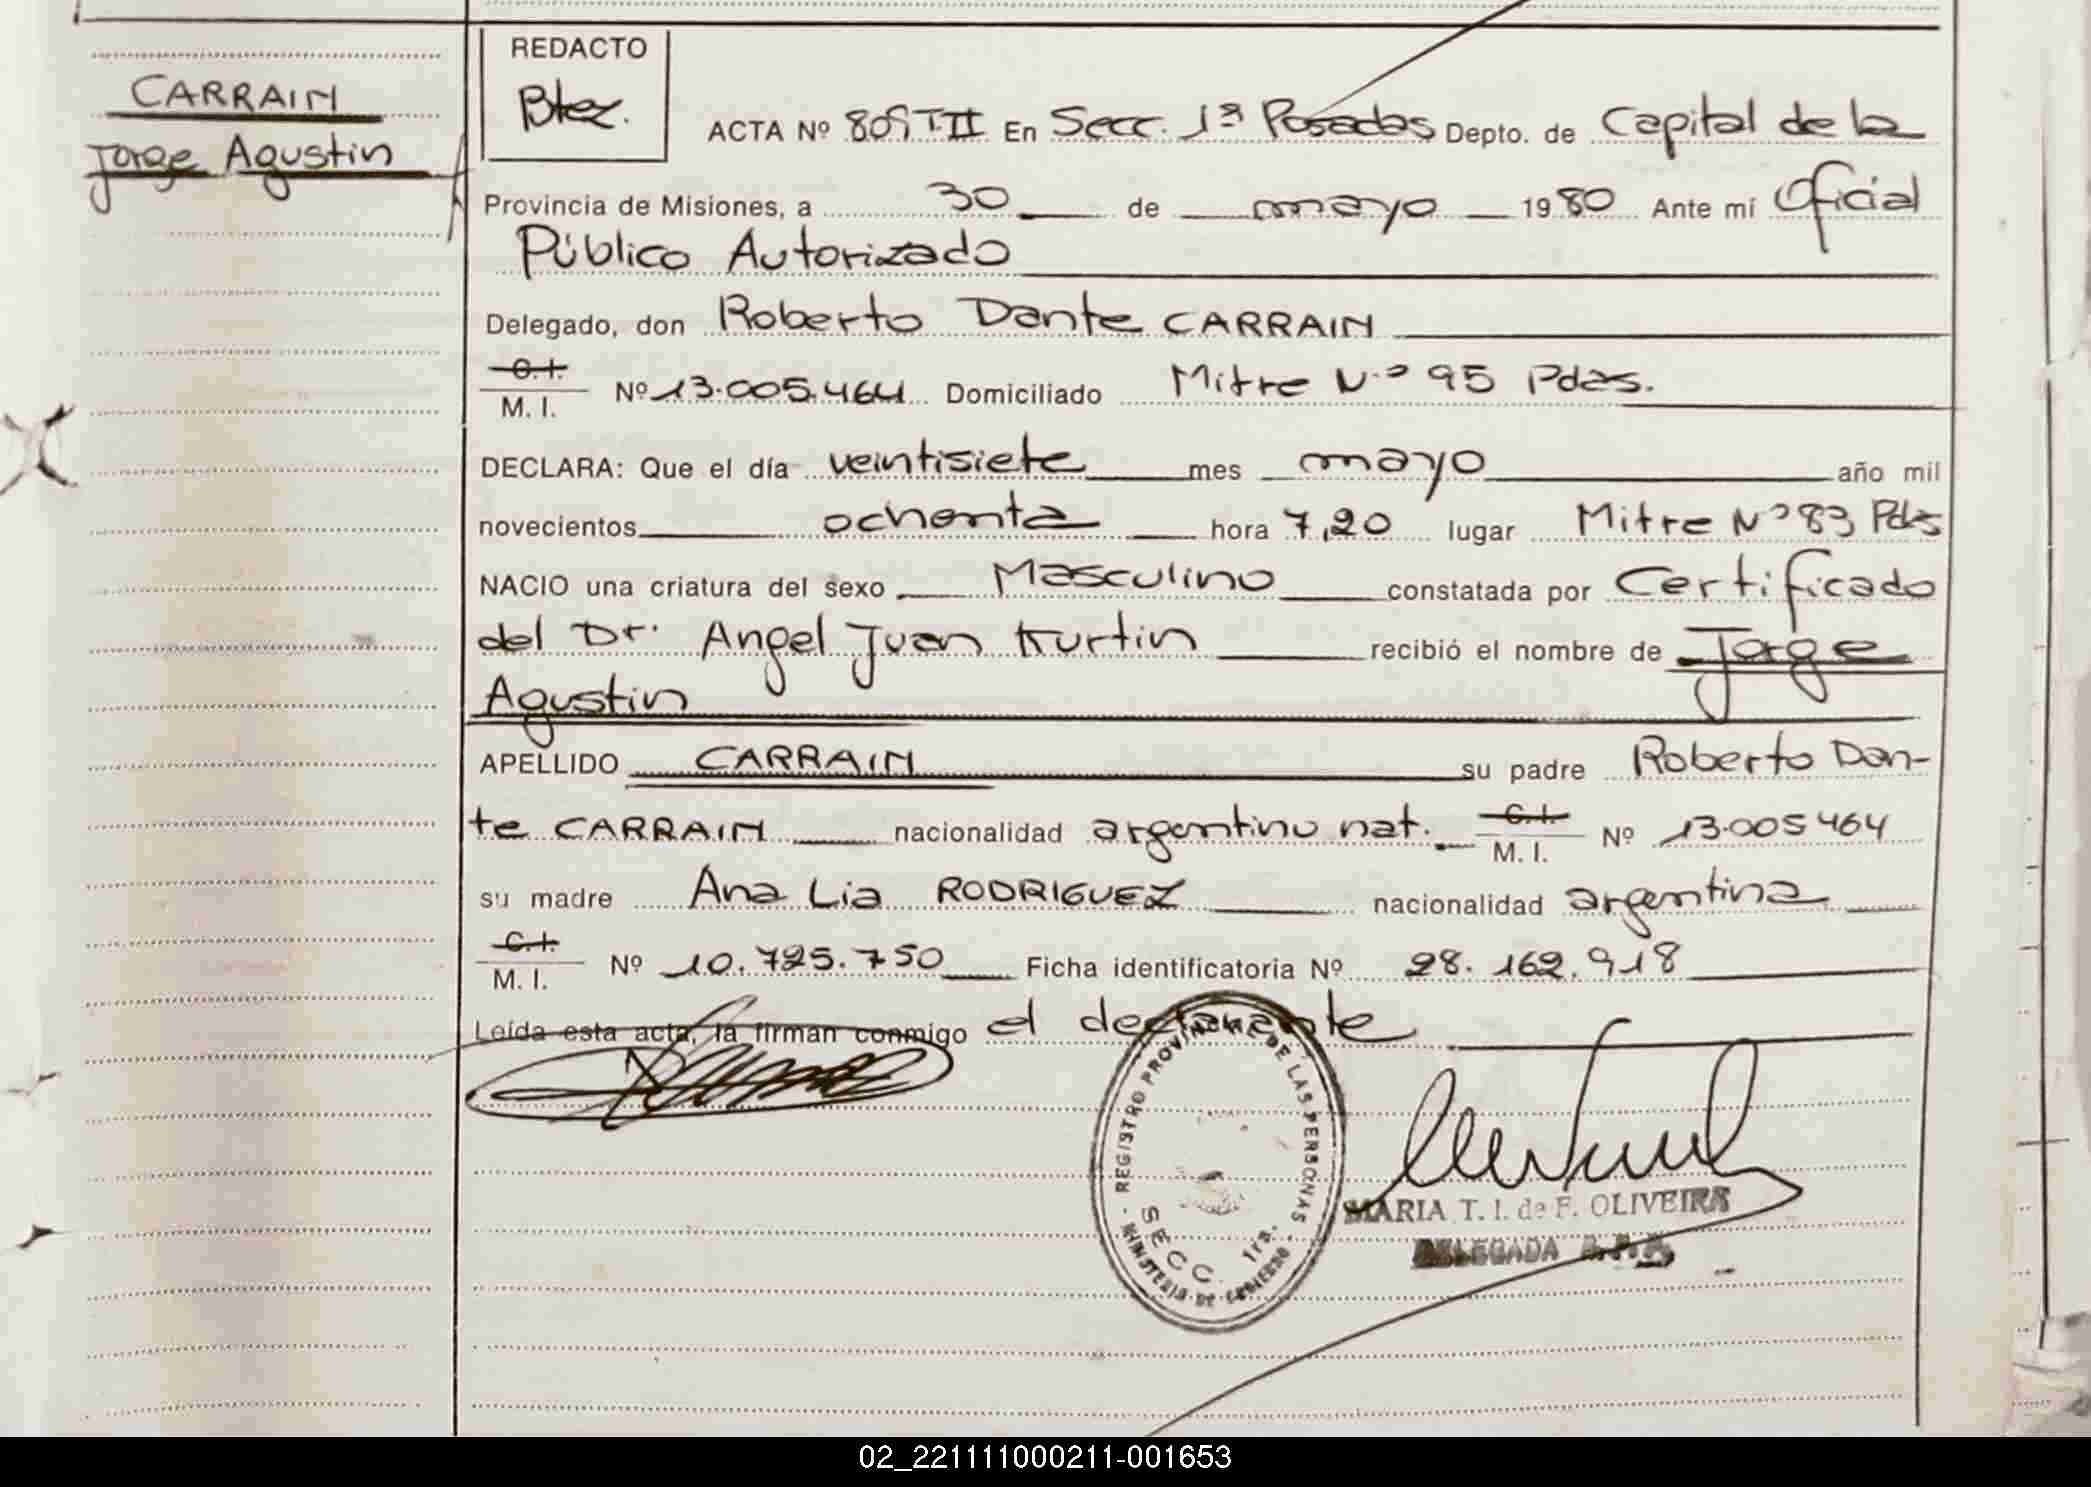 CARRAIN
Jorge Agustin
REDACTO
Btez.
ACTA Nº 809 T II En Secc. 1ª Posadas Depto. de Capital de la
Provincia de Misiones, a 30 de mayo 1980 Ante mí Oficial
Público Autorizado
Delegado, don Roberto Dante CARRAIN
C.I.
M. I. Nº 13.005.464 Domiciliado Mitre Nº 95 Pdas.
DECLARA: Que el día veintisiete mes mayo año mil
novecientos ochenta hora 7,20 lugar Mitre Nº 83 Pdas
NACIO una criatura del sexo Masculino constatada por Certificado
del Dr. Angel Juan Kurtin recibió el nombre de Jorge
Agustin
APELLIDO CARRAIN su padre Roberto Dan-
te CARRAIN nacionalidad argentino nat. C.I. M. I. Nº 13.005464
su madre Ana Lia RODRIGUEZ nacionalidad argentina
C.I.
M. I. Nº 10.725.750 Ficha identificatoria Nº 28.162.918
Leída esta acta, la firman conmigo el declarante
REGISTRO PROVINCIAL DE LAS PERSONAS
SECC. 1ra.
MINISTERIO DE GOBIERNO
MARIA T. I. de F. OLIVEIRA
DELEGADA
02_221111000211-001653